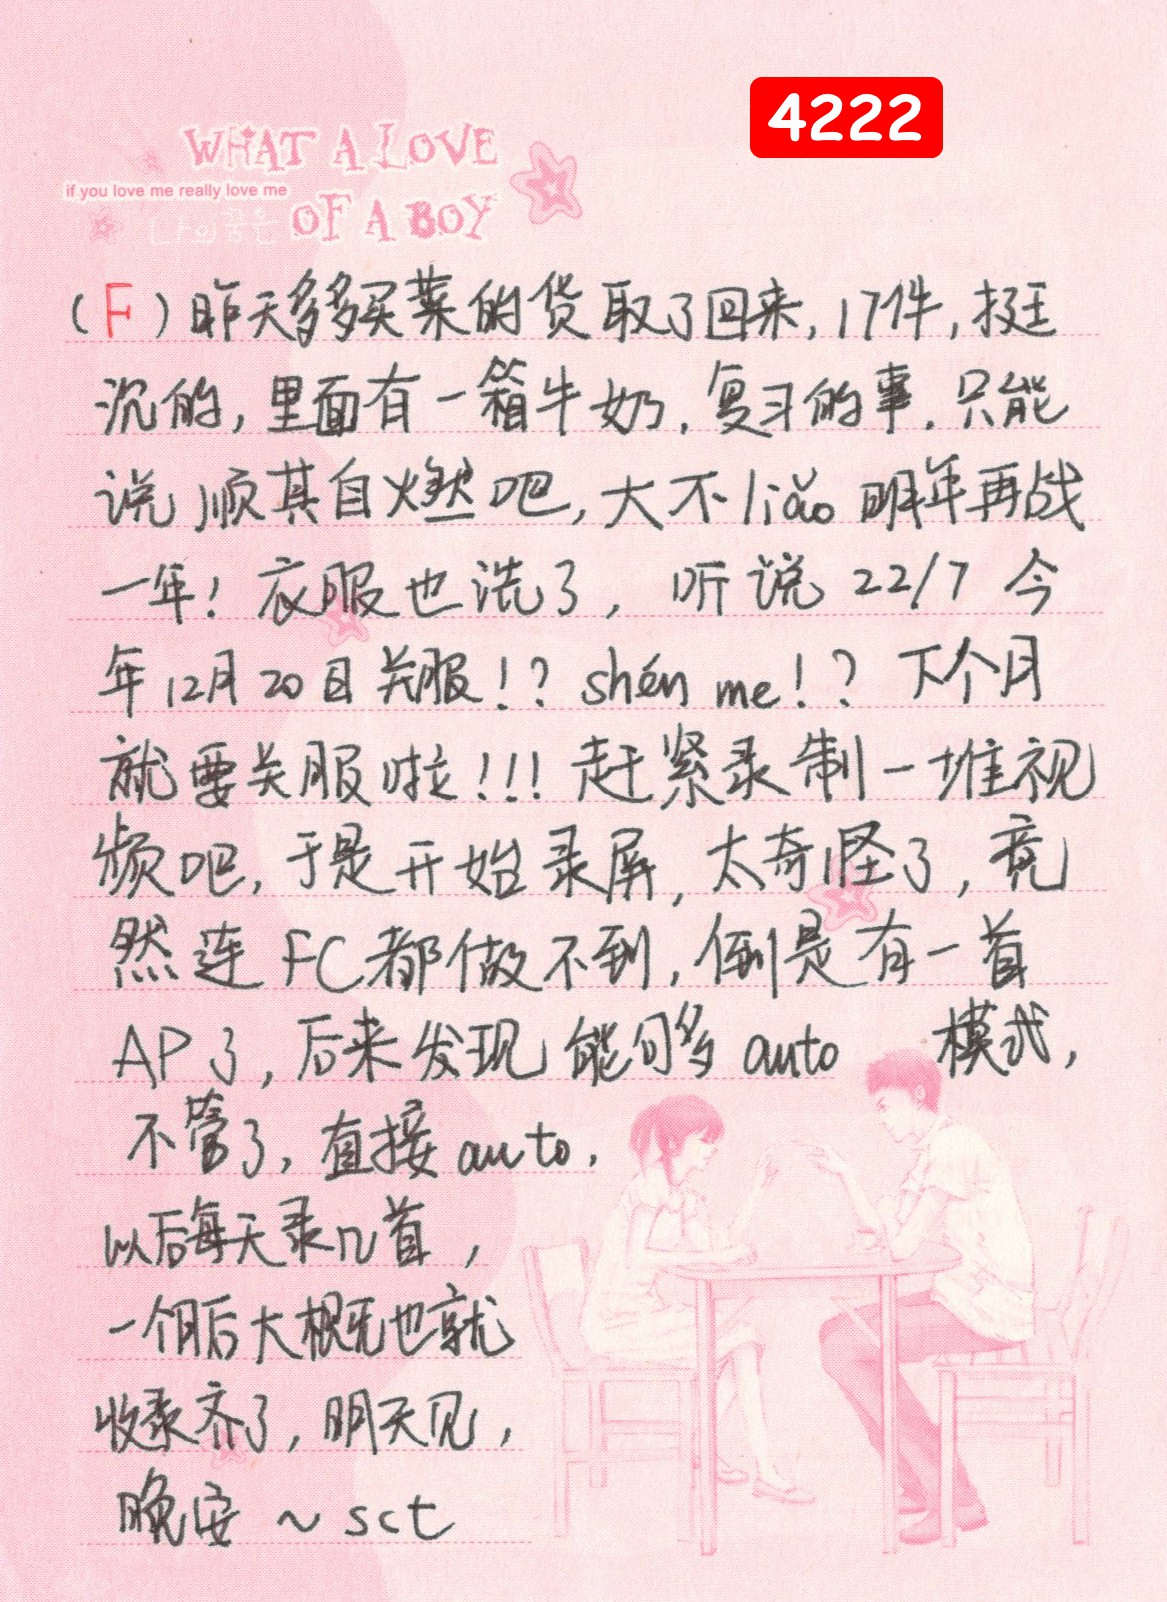 4222
WHAT A LOVE
if you love me really love me
OF A BOY
(F)昨天多多买菜的货取了回来,17件,挺
沉的,里面有一箱牛奶,复习的事,只能
说顺其自燃吧,大不liǎo明年再战
一年!衣服也洗了,听说22/7今
年12月20日关服!?shén me!?下个月
就要关服啦!!!赶紧录制一堆视
频吧,于是开始录屏,太奇怪了,竟
然连FC都做不到,倒是有一首
AP了,后来发现能够auto 模式,
不管了,直接auto,
以后每天录几首,
一个月后大概也就
收录齐了,明天见,
晚安~sct